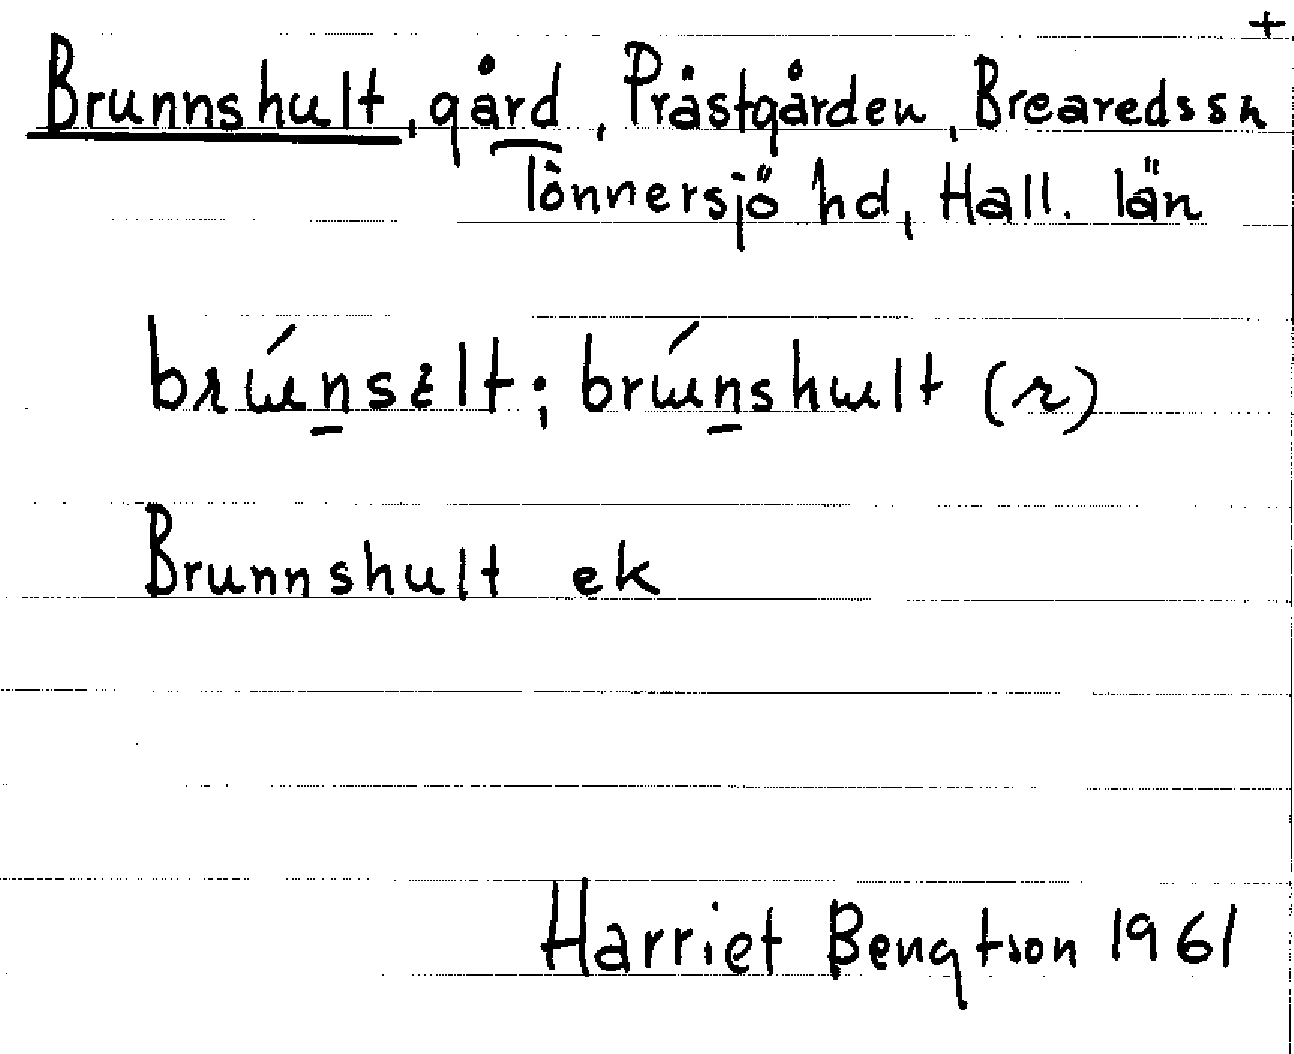 +
Brunnshult, gård, Prästgården, Brearedssn
Tönnersjö hd, Hall. län
brɯ́n̲sɛlt; brɯ́n̲shɯlt (r)
Brunnshult ek
Harriet Bengtson 1961